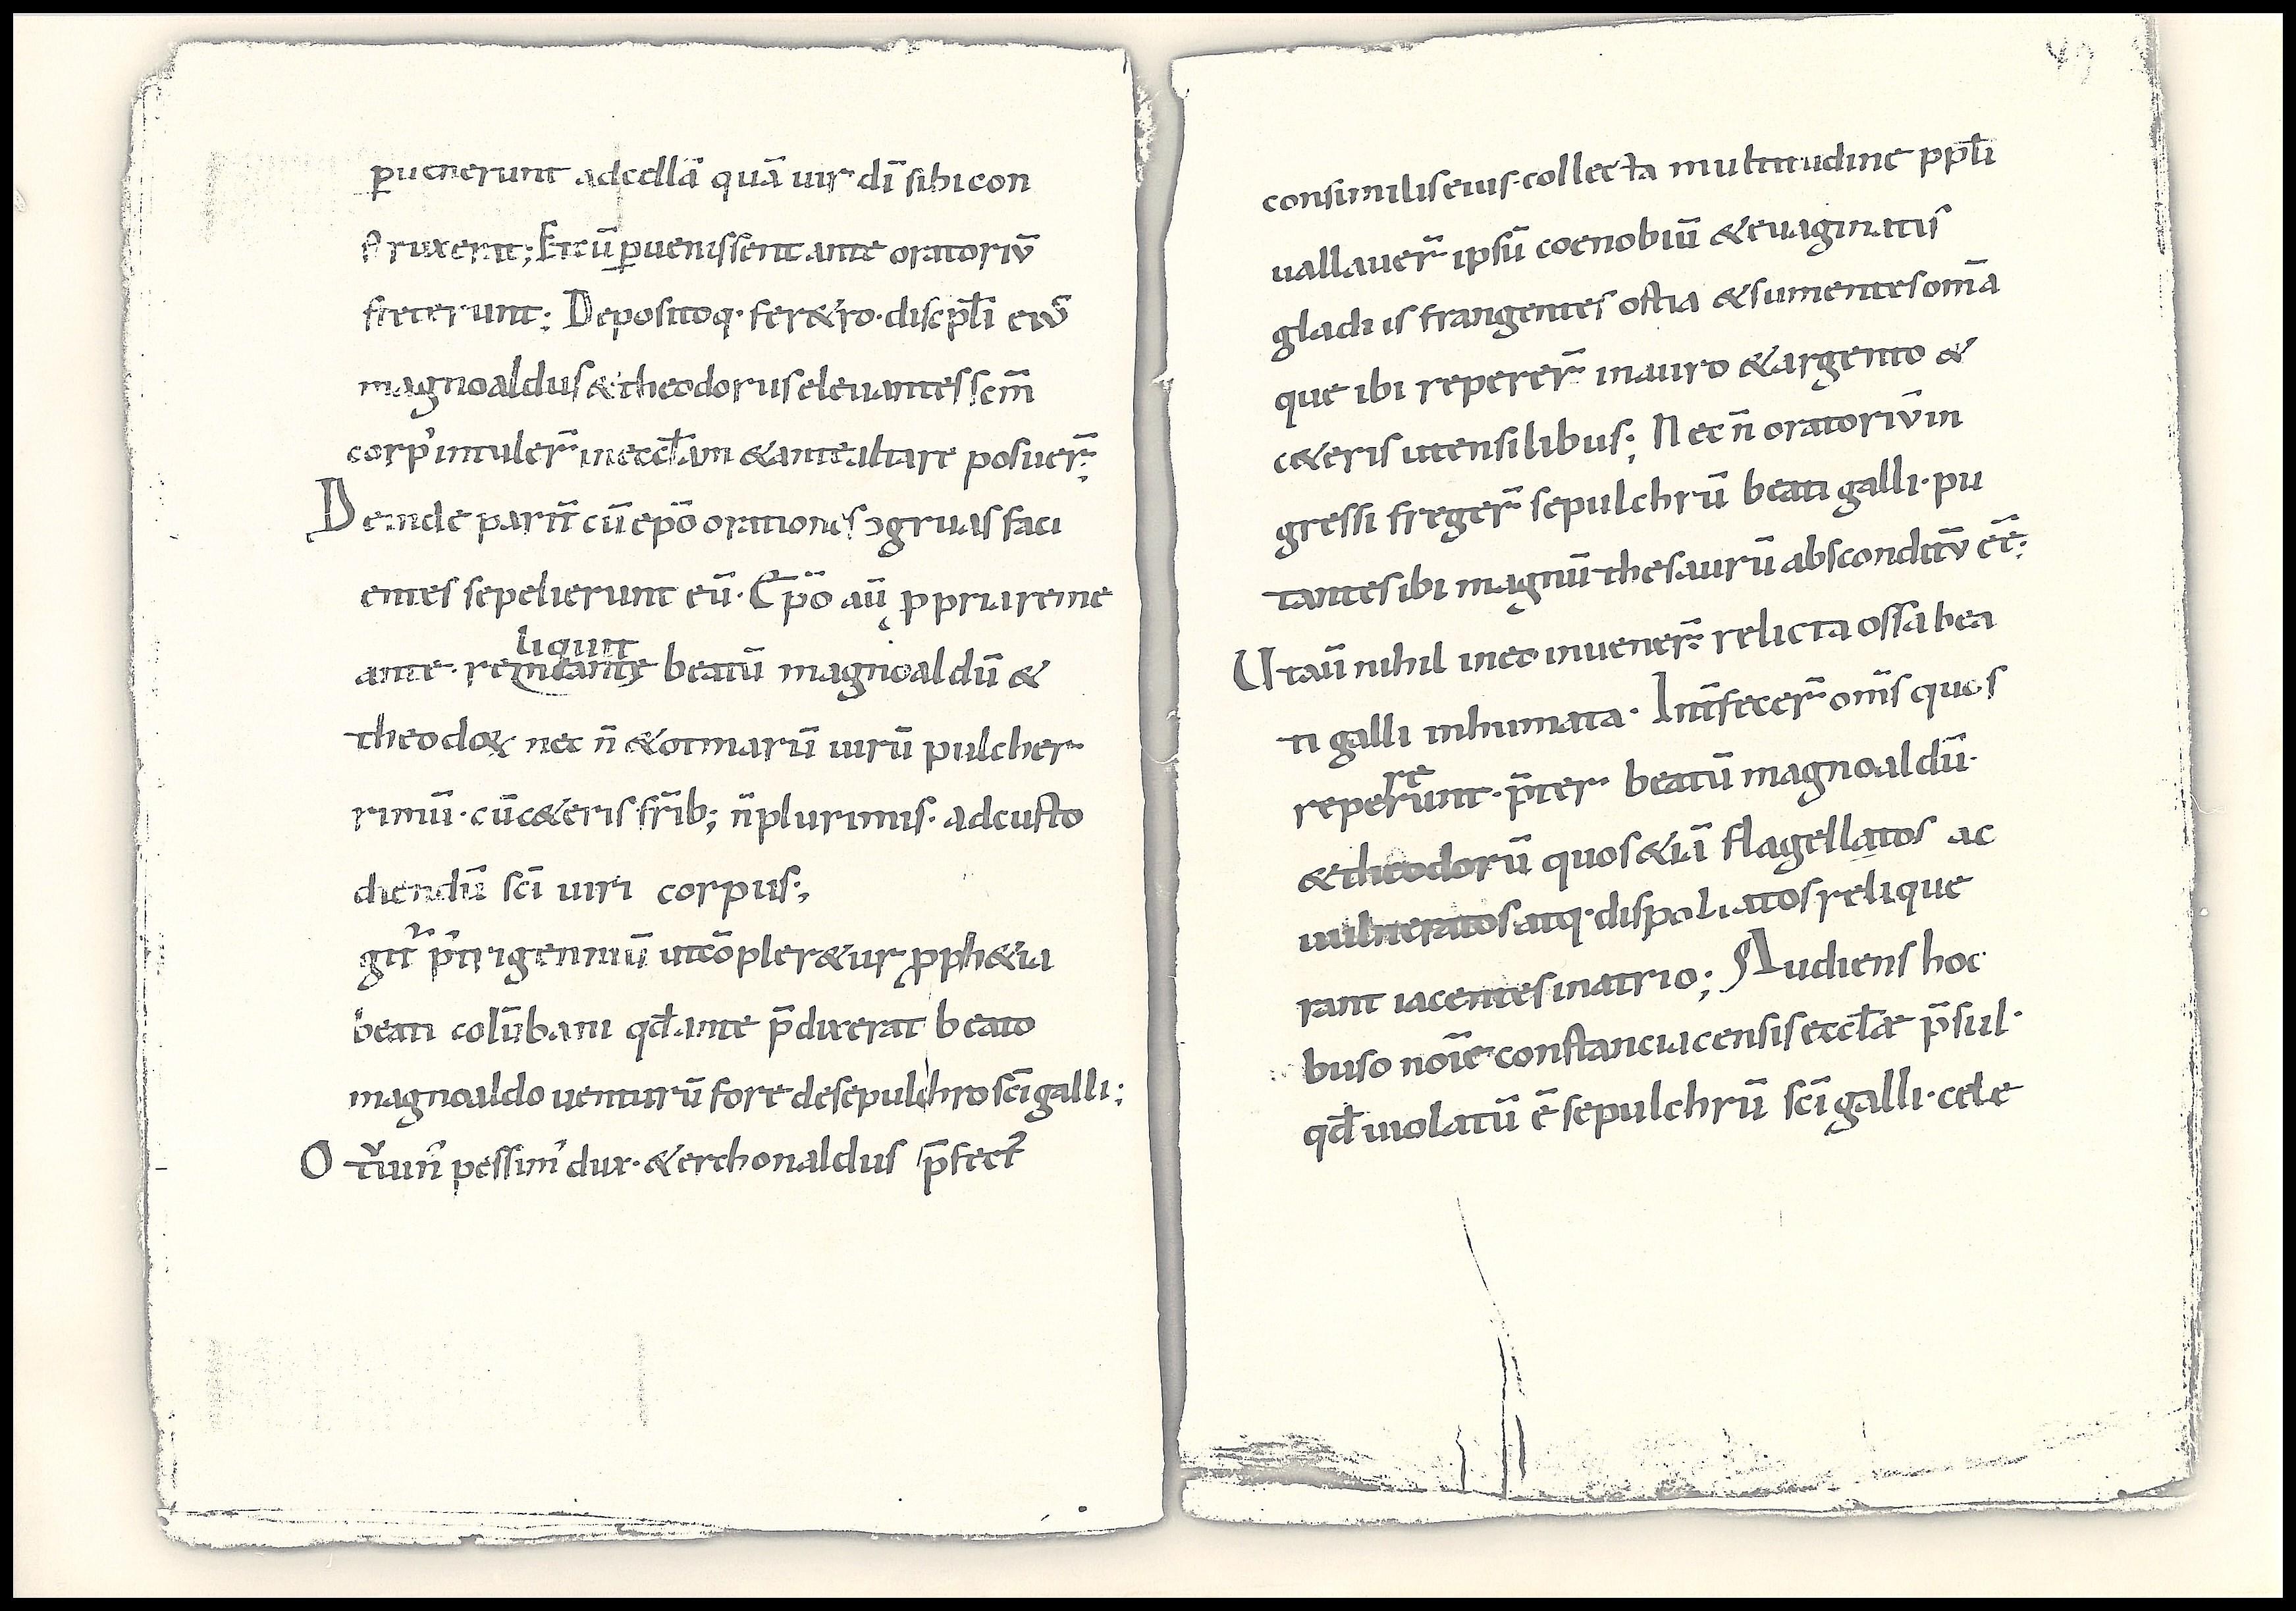 puenerunt adcellā quā uir dī sibi con
struxerat; Et cū puenissent ante oratoriū
steterunt; Depositoq· fer&ro· discpłi eius
magnoaldus & theodorus eleuantes scm̄
corp' intuler̄ in eccłam & ante altare posuer̄;
Deinde parit̄ cū ep̄o orationes ↄgruas faci
entes sepelierunt eū· Ep̄o aū ppria reme
liquit
ante· remeante beatū magnoaldū &
theodoꝝ nec ñ & otmarū uirū pulcher
rimū· cū c&eris fr̄ib; ñ plurimis· adcusto
diendū sc̄i uiri corpus;
git' p' trigenniū ut cōpler&ur pph&ia
beati colūbani qđ ante p̄dixerat beato
magnoaldo uenturū fore de sepulchro sc̄i galli;
Otuin' pessim' dux· & erchonaldus p̄fect'
49
consimilis eius· collecta multitudine ppłi
uallauer̄ ipsū coenobiū & euaginatis
gladiis frangentes ostia & sumentes om̄a
que ibi reperer̄ in auro & argento &
c&eris utensilibus; Nec ñ oratoriū in
gressi freger̄ sepulchrū beati galli· pu
tantes ibi magnū thesaurū absconditū ēē;
Ut aū nihil in eo inuener̄ relicta ossa bea
ti galli inhumata· Int̄fecer̄ om̄s quos
re
reperunt· p̄ter beatū magnoaldū·
& theodorū quos &iā flagellatos ac
uulneratos atq· dispoliatos relique
rant iacentes in atrio; Audiens hoc
buso noīe constanciacensis eccłæ p̄sul·
qđ uiolatū ē sepulchrū sc̄i galli· cele